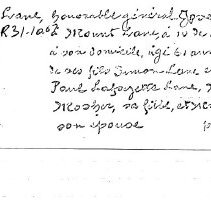 Lane, honorable général Jose
R31-1a02 à Mount Lane, à 10 de
à son domicile, âgé 61 an
de ses fils Simon Lane e
Paul Lafayette Lane,
Mosher, sa fille, et de
son épouse p